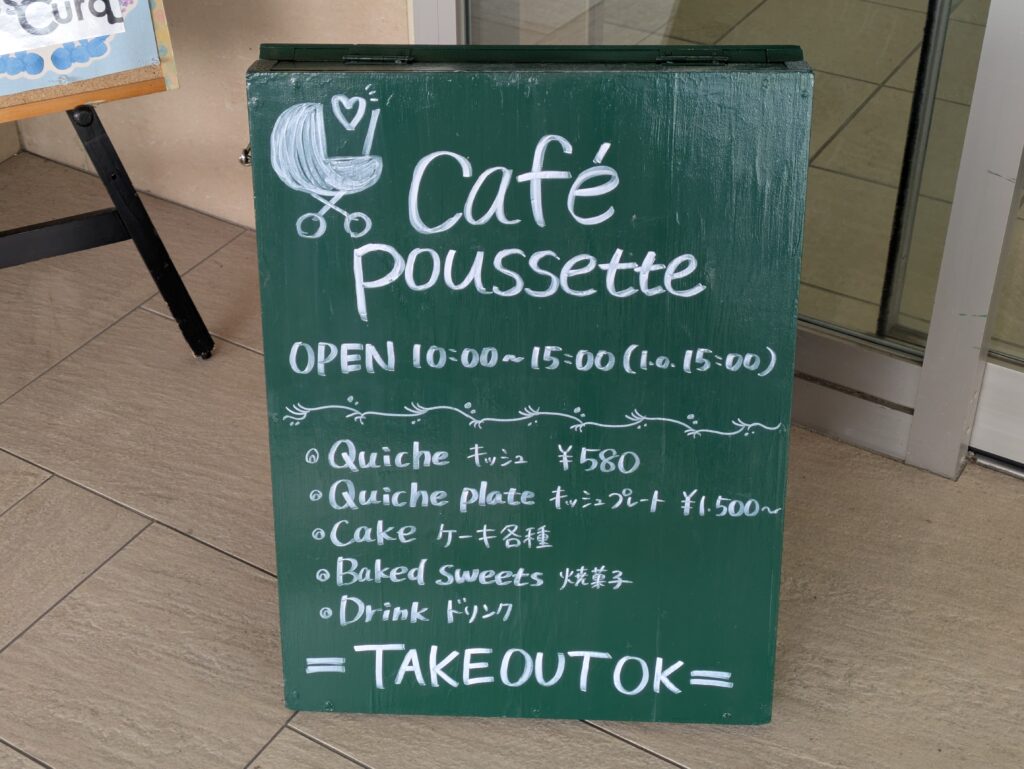 Cura
Café
poussette
OPEN 10:00~15:00(l.o. 15:00)
Quiche キッシュ ¥580
Quiche plate キッシュプレート ¥1.500~
Cake ケーキ各種
Baked Sweets 焼菓子
Drink ドリンク
=TAKEOUT OK=